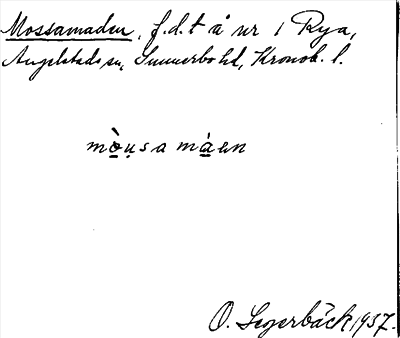 Mossamaden, f.d. t å nr 1 Rya,
Angelstads sn, Sunnerbo hd, Kronob. l.
mò̲ṳsa má̲en
O. Segerbäck 1937.